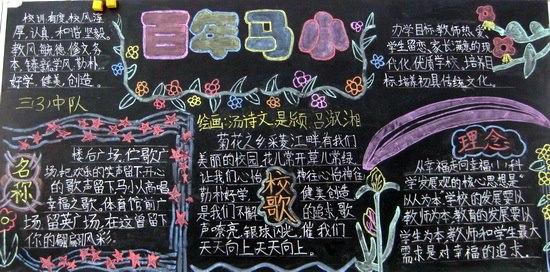 校训:有度,校风:淳
厚,认真,和谐,坚毅.
教风:敏德,修文务
本,铸就学风:勤朴
好学,健美,创造.
百年马小
办学目标:教师热爱,
学生留恋,家长满意的现
代化,优质学校,培养目
标:培养初具传统文化.
三(3)中队
绘画:汤诗文 是颍 吕淑湘
名称
楼后广场,伫歌广
场,把欢快的笑声留下,开心
的歌声留下马小人高唱
幸福之歌,体育馆前广
场,留英广场,在这曾留下
你的翩翩风彩.
菊花之乡采菱江畔有我们
美丽的校园,花儿常开草儿常绿,
让我们心怡神往心怡神往
勤朴好学,健美创造
是我们不懈的追求,歌
声嘹亮,银球闪光,催我们
天天向上天天向上.
校歌
理念
从幸福走向幸福,“小科
学发展观的核心思想是”
以人为本,学校的发展要以
教师为本,教育的发展要以
学生为本,教师和学生最大
需求是对幸福的追求.